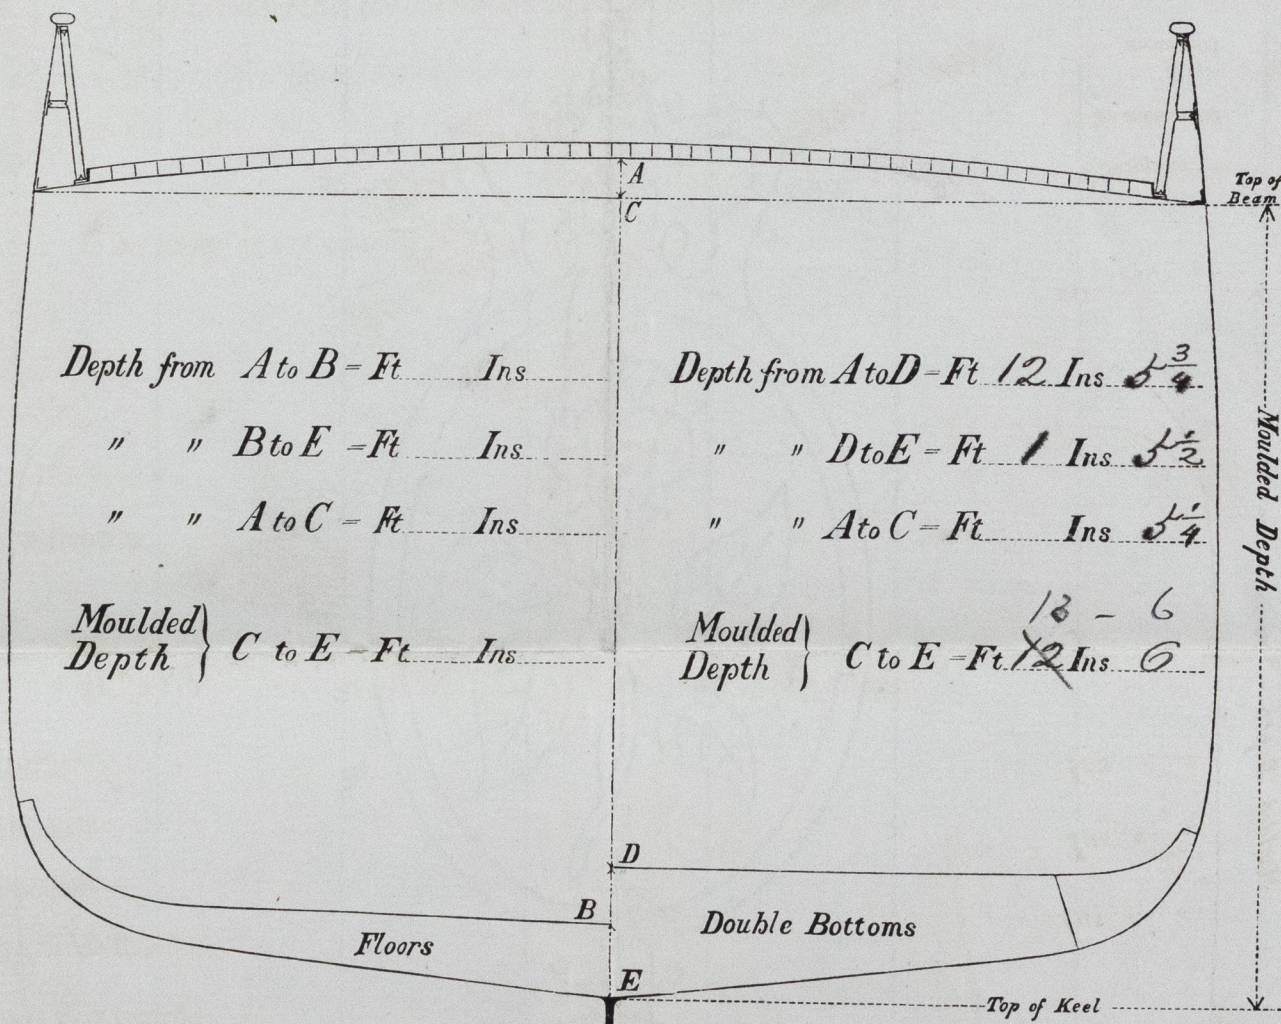 A
Top of
Beam
C
Depth from A to B = Ft Ins
" " B to E = Ft Ins
" " A to C = Ft Ins
Moulded
Depth } C to E = Ft Ins
Depth from A to D = Ft 12 Ins 5 3/4
" " D to E = Ft 1 Ins 5 1/2
" " A to C = Ft Ins 5 1/4
13 - 6
Moulded
Depth } C to E = Ft 12 Ins 6
Moulded Depth
D
B
Double Bottoms
Floors
E
Top of Keel